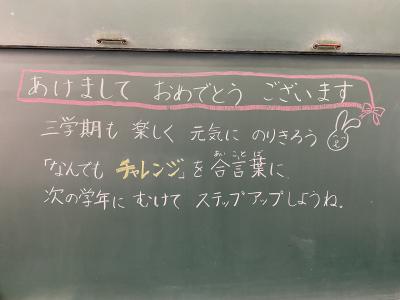 あけまして おめでとう ございます
三学期も 楽しく 元気に のりきろう
「なんでも チャレンジ」を 合言葉に
あい こと ば
次の学年に むけて ステップアップしようね.